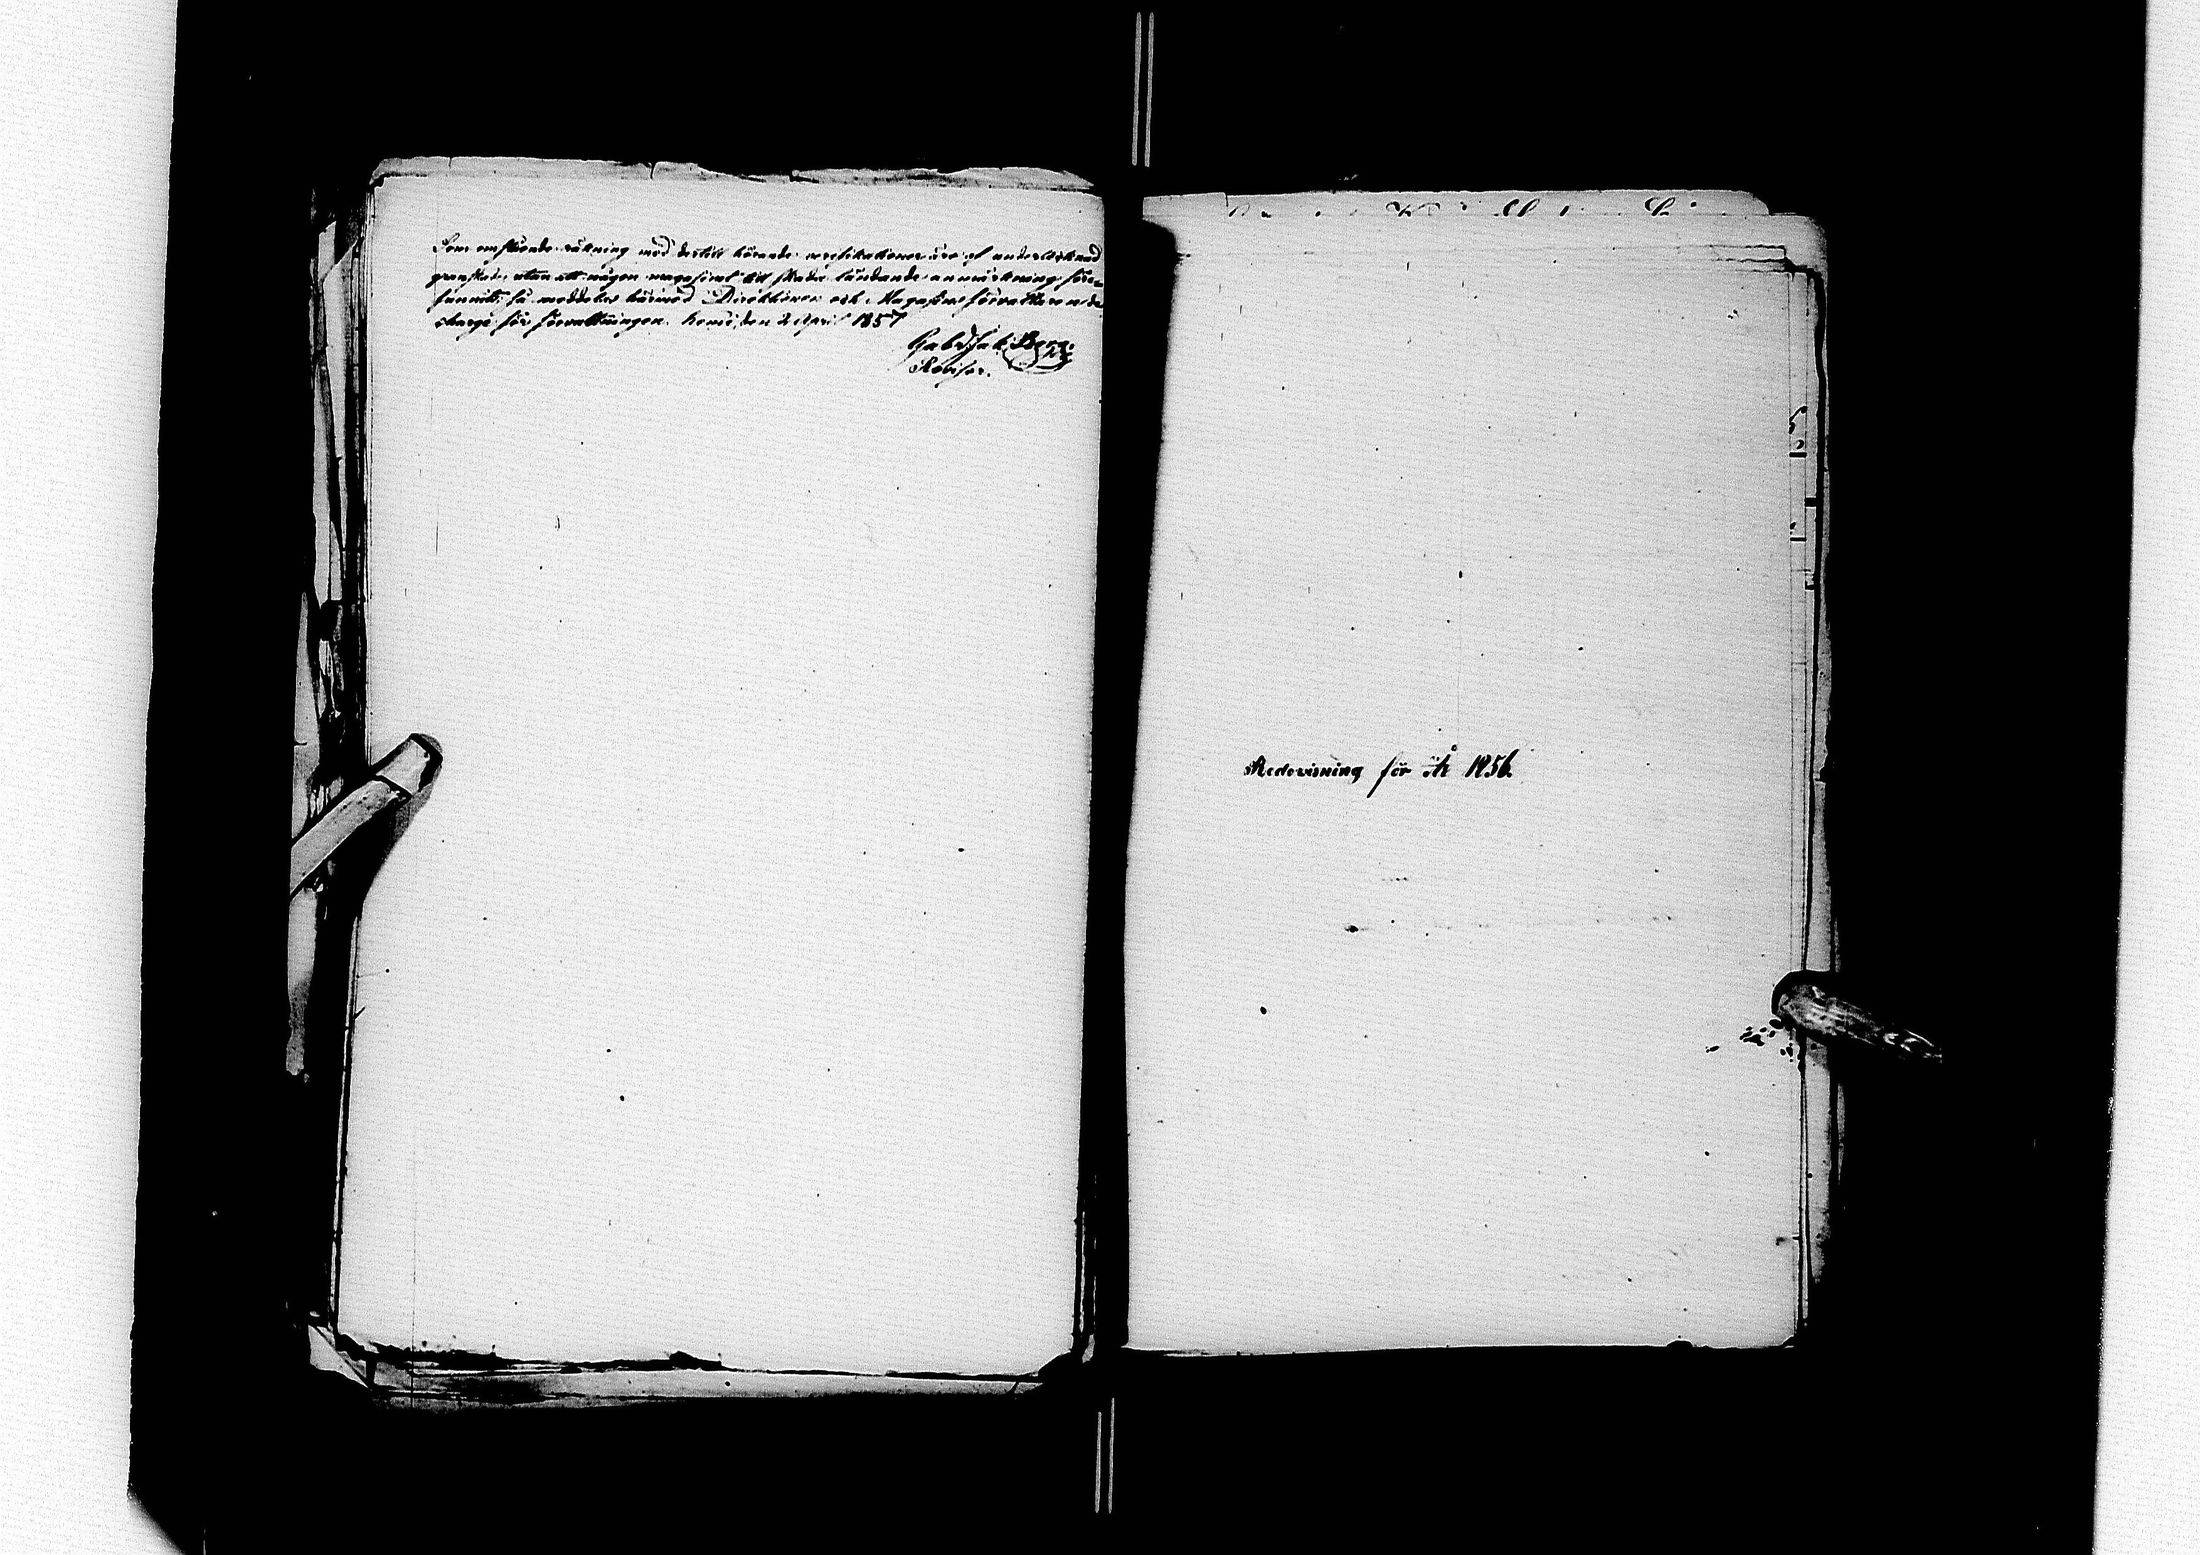 Som omstående räkning med dertill hörande verifikationer äro af undertecknad
granskade utan att någon magasinet till skada ländande anmärkning före-
funnits, så meddelas härmed Direktionen och Magasins förvaltaren de
charge för förvaltningen. Kemi, den 2 April 1857
Gab. Isak Berg.
Revisor.
Redovisning för År 1856.